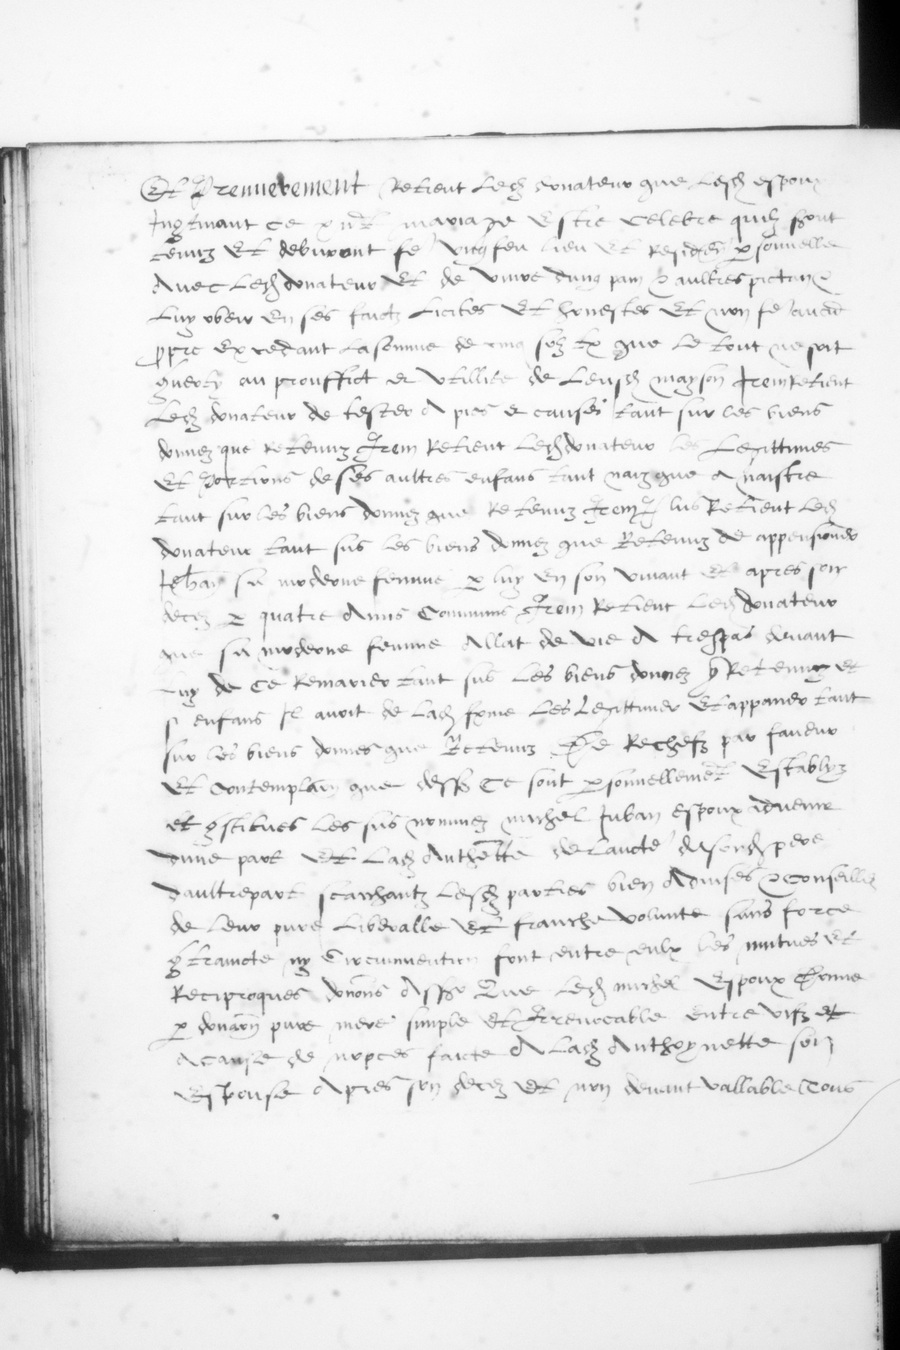 Et Premierement Retient Led donateur que Lesd espoux
ce mariage Estre Celebre quilz sont
tenuz Et debvront fe ung feu lieu Et Residen personnelle
Avec Led donateur Et de vivre dung pain & aultres pictan
Luy obeir En ses faictz Licites Et honestes Et non fe
excedant La somme de cinq solz tz que Le tout ne soit
au prouffict et Utillite de Leursd mayson Item Retient
Led donateur de tester A pies et causes tant sur les biens
donnez que Retenuz Item Retient Led donateur les Legittimes
Et Portions de ses aultres enfans tant naiz que a naistre
tant sur les biens donnez que Retenuz Item Plus Retient Led
donateur tant sus Les biens donnez que Retenuz de appensionner
sa moderne femme p luy En son vivant Et apres son
decez p quatre Anis Communs Item Retient Led donateur
que sa moderne femme Allat de vie A trespas devant
Luy de Ce Remarier tant sus Les biens donnez q Retenuz et
si enfans Il avoit de Lad feme Les Legittimer Et appaner tant
sur les biens donnes que Retenuz De Rechefz par faveur
Et Contemplaon que dessus Ce sont personnellement Establyz
et gstitues Les sus nommez michel Juban espoux advenir
dune part Et Lad Anthette de Lauctte dusond pere
daultrepart scaichantz Lesd parties bien Advises & Conseillies
de Leur pure Liberalle Et franche volunte sans force
gtraincte ny Circumvention font entre eulx les mutues Et
Reciproques donons Assr Que Led michel Espoux Donne
p donaon pure mere simple Et Irrevocable entre vifz et
A cause de nopces faicte A Lad Anthoynette son
Espouse Apres son decez Et non devant vallable Tous